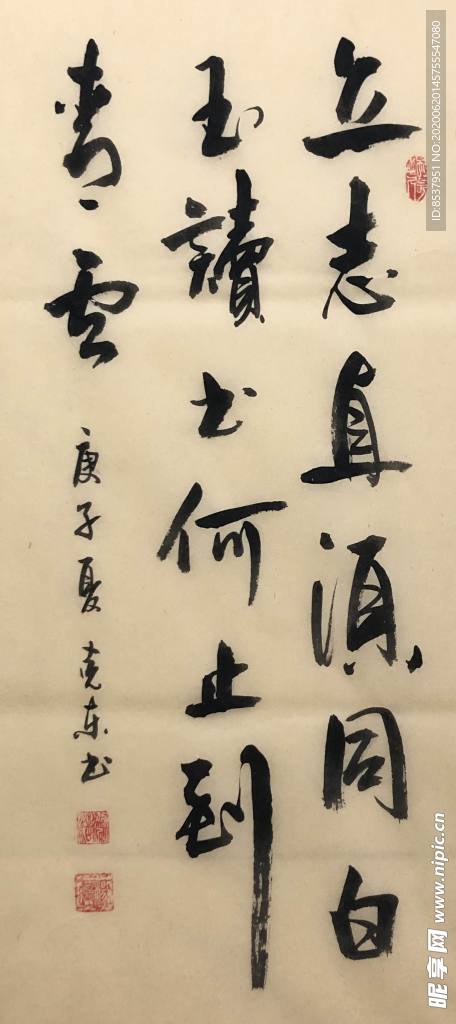 立志直須同白
玉讀书何止到
青雲
庚子夏克东书
ID:8537951 NO:20200620145755547080
昵享网 www.nipic.cn